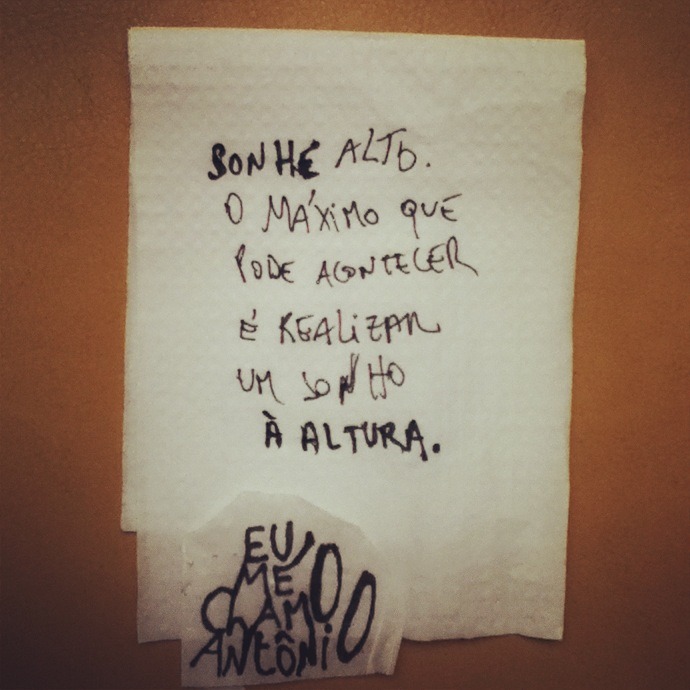 SONHE ALTO.
O MÁXIMO QUE
PODE ACONTECER
É REALIZAR
UM SONHO
À ALTURA.
EU
ME
CHAMO
ANTÔNIO